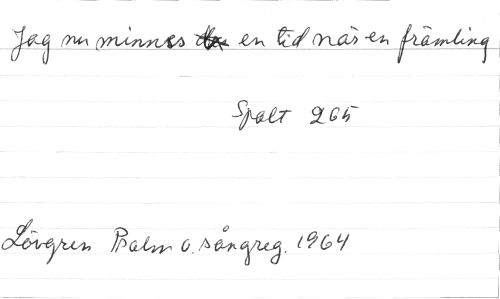 Jag nu minnes en tid när en främling
Spalt 265
Lövgren Psalm o. sångreg. 1964